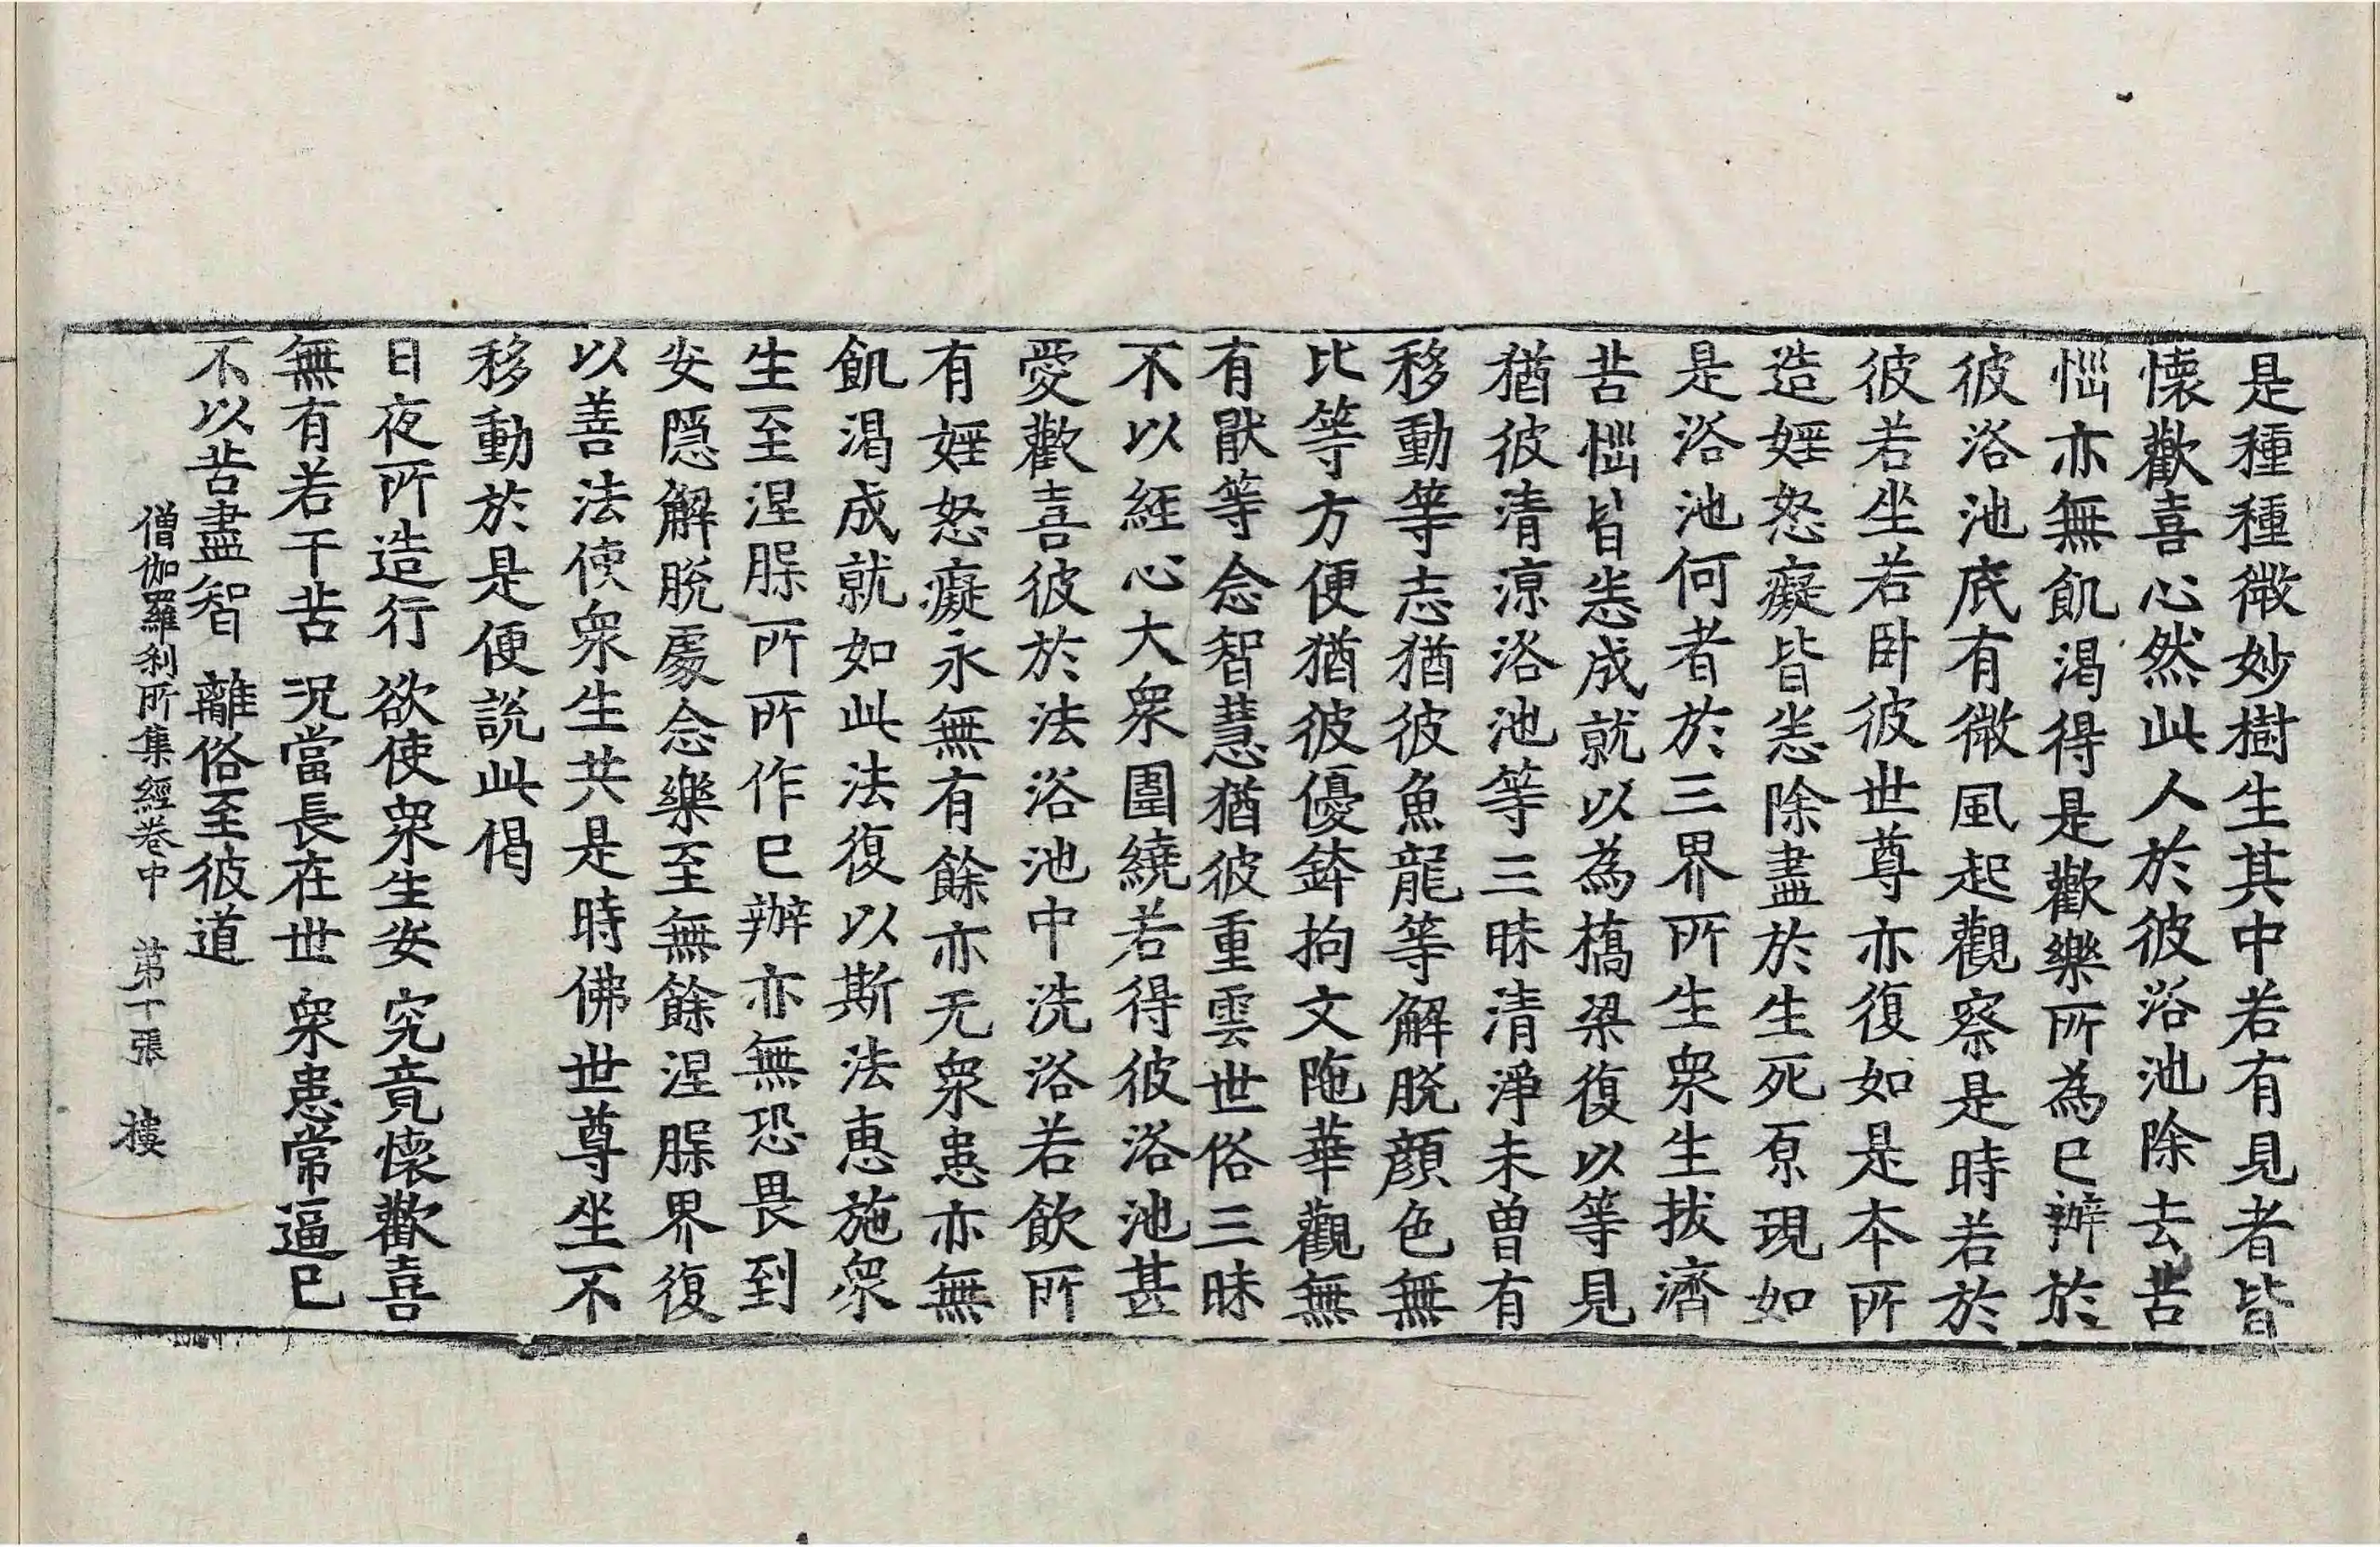 是種種微妙樹生其中若有見者皆
懐歡喜心然此人於彼浴池除去苦
惱亦無飢渇得是歡樂所為已辦於
彼浴池底有微風起觀察是時若於
彼若坐若卧彼世尊亦復如是本所
造婬怒癡皆悉除盡於生死原現如
是浴池何者於三界所生衆生拔濟
苦惱皆悉成就以為橋梁復以等見
猶彼清涼浴池等三昧清淨未曽有
移動等志猶彼魚龍等解脫顔色無
比等方便猶彼優鉢拘文陁華觀無
有猒等念智慧猶彼重雲世俗三昧
不以經心大衆圍繞若得彼浴池甚
愛歡喜彼於法浴池中洗浴若飲所
有婬怒癡永無有餘亦无衆患亦無
飢渇成就如此法復以斯法惠施衆
生至涅槃所所作已辦亦無恐畏到
安隱解脫處念樂至無餘涅槃界復
以善法使衆生共是時佛世尊坐不
移動於是便説此偈
日夜所造行 欲使衆生安 究竟懐歡喜
無有若干苦 况當長在世 衆患常逼已
不以苦盡智 離俗至彼道
僧伽羅刹所集經卷中 苐十張 樓